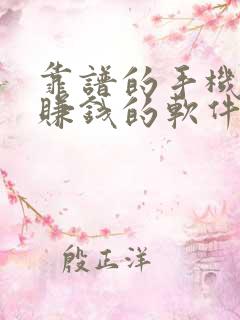 靠譜的手機
賺錢的軟件
殷正洋